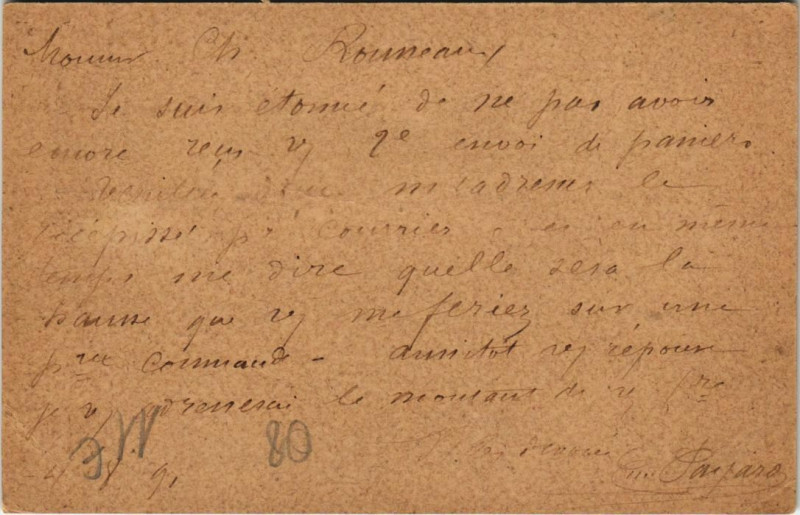 Monsieur Ch. Rousseaux
Je suis étonné de ne pas avoir
encore reçu vre 2e envoi de paniers
Veuillez donc m'adresser le
récépissé pr courrier et en même
temps me dire quelle sera la
hausse que vs me feriez sur une
pre command - aussitôt vre réponse
je vs adresserai le montant de vre fre
80
91